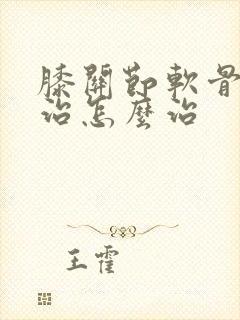 膝關節軟骨
治怎麼治
王霍